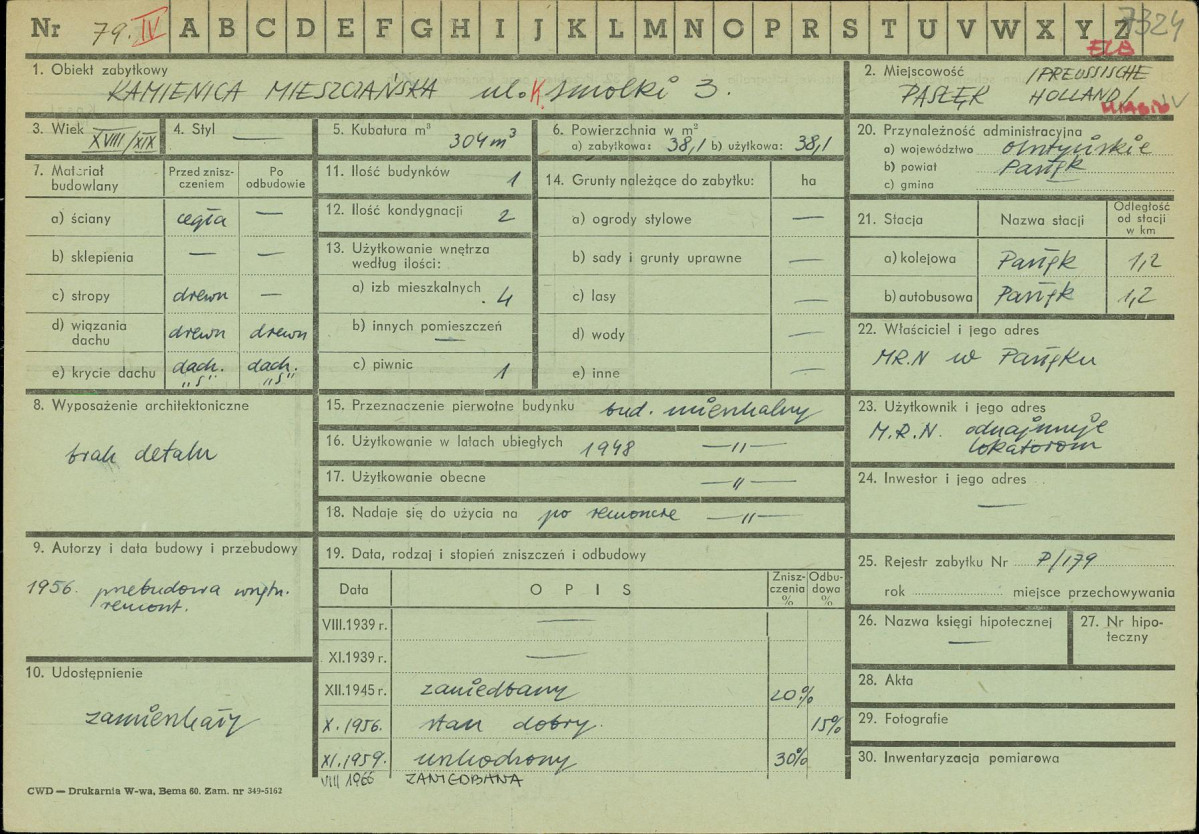 Nr 79. IV A B C D E F G H I J K L M N O P R S T U V W X Y Z 7324
ELB
1. Obiekt zabytkowy
KAMIENICA MIESZCZAŃSKA ul. K. Smolki 3.
2. Miejscowość /PREUSSISCHE
PASŁĘK HOLLAND/
3. Wiek XVIII/XIX
4. Styl —
5. Kubatura m³ 304 m³
6. Powierzchnia w m²
a) zabytkowa: 38,1 b) użytkowa: 38,1
20. Przynależność administracyjna
a) województwo olsztyńskie
b) powiat Pasłęk
c) gmina
7. Materiał budowlany
Przed zniszczeniem
Po odbudowie
a) ściany cegła —
b) sklepienia — —
c) stropy drewn —
d) wiązania dachu drewn drewn
e) krycie dachu dach. "S" dach. "S"
11. Ilość budynków 1
12. Ilość kondygnacji 2
13. Użytkowanie wnętrza
według ilości:
a) izb mieszkalnych 4
b) innych pomieszczeń —
c) piwnic 1
14. Grunty należące do zabytku: ha
a) ogrody stylowe —
b) sady i grunty uprawne —
c) lasy —
d) wody —
e) inne —
21. Stacja Nazwa stacji Odległość od stacji w km
a) kolejowa Pasłęk 1,2
b) autobusowa Pasłęk 1,2
22. Właściciel i jego adres
M.R.N w Pasłęku
8. Wyposażenie architektoniczne
brak detalu
15. Przeznaczenie pierwotne budynku bud. mieszkalny
16. Użytkowanie w latach ubiegłych 1948 —"—
17. Użytkowanie obecne —"—
18. Nadaje się do użycia na po remoncie —"—
23. Użytkownik i jego adres
M.R.N. odnajmuje
lokatorom
24. Inwestor i jego adres
—
9. Autorzy i data budowy i przebudowy
1956. przebudowa wnętrz.
remont.
19. Data, rodzaj i stopień zniszczeń i odbudowy
Data OPIS Zniszczenia % Odbudowa %
VIII.1939 r. —
XI.1939 r. —
XII.1945 r. zaniedbany 20%
X. 1956. stan dobry. 15%
XI. 1959. uszkodzony 30%
VIII 1966 ZANIEDBANA
25. Rejestr zabytku Nr P/179
rok miejsce przechowywania
26. Nazwa księgi hipotecznej
—
27. Nr hipoteczny
10. Udostępnienie
zamieszkały
28. Akta
29. Fotografie
30. Inwentaryzacja pomiarowa
CWD — Drukarnia W-wa, Bema 60. Zam. nr 349-5162